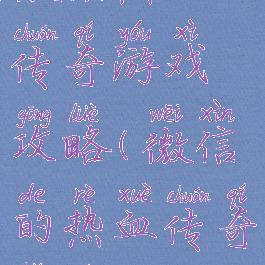 chuán qí yóu xì
传奇游戏
gōng lüè wēi xìn
攻略(微信
de rè xuè chuán qí
的热血传奇